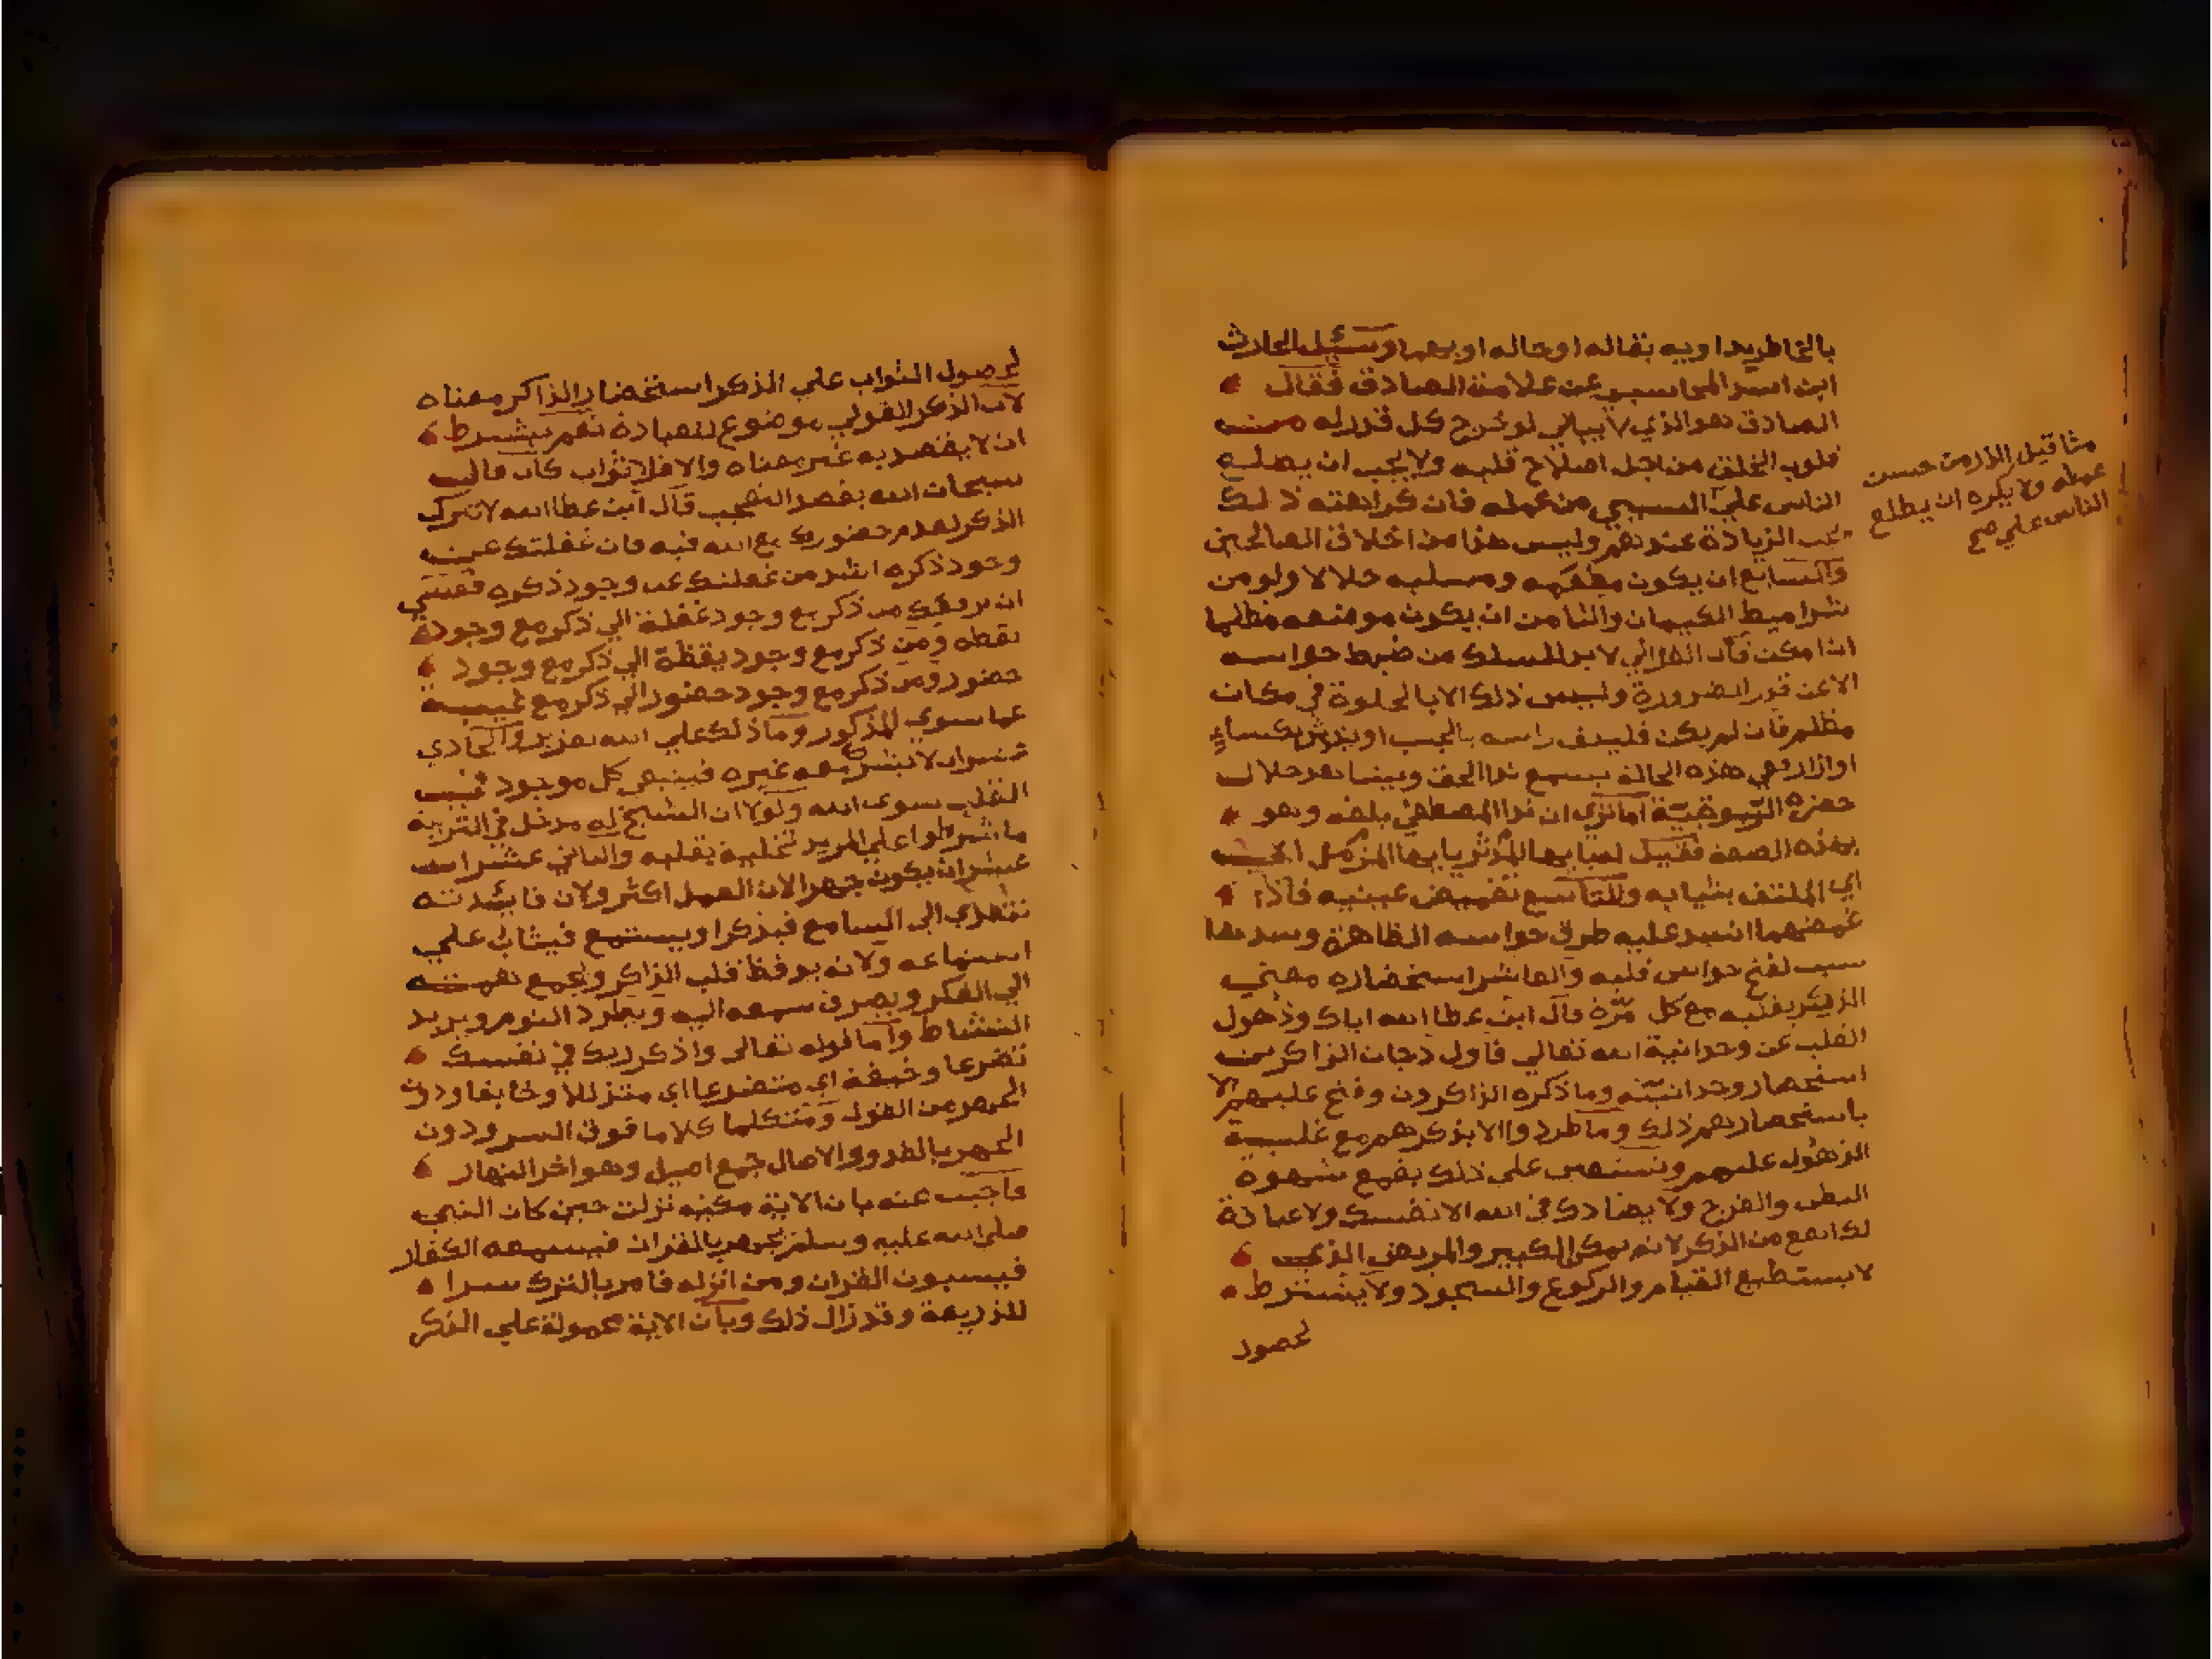 بالخاطر يداويه بقاله او حاله او بهما وسئل الحارث
ابن اسد المحاسبي عن علامة الصادق فقال
الصادق هو الذي لا يبالي لو خرج كل قدر له من
قلوب الخلق من اجل اصلاح قلبه ولا يجب ان يطلع
الناس علي السيي من عمله فان كراهته ذلك
يحب الزيادة عندهم وليس هذا من اخلاق الصالحين
والسابع ان يكون مطعمه وملبسه حلالا ولو من
شراميط الكيمان والثامن ان يكون موضعه مظلما
ان امكن قال الغزالي لا بد للسالك من ضبط حواسه
الا عن قدر الضرورة وليس ذلك الا بالخلوة في مكان
مظلم فان لم يكن فليلف راسه بالجيب او يتدثر بكساء
او ازار ففي هذه الحالة يسمع ندا الحق ويشاهد جلال
حضرة الربوبية اما تري ان ندا المصطفي بلغه وهو
بهذه الصفة فقيل له يا ايها المدثر يا ايها المزمل
اي الملتف بثيابه والتاسع تغميض عينيه فاذا
غمضهما انسد عليه طرق حواسه الظاهرة وسدها
سبب لفتح حواس قلبه والعاشر استحضاره معني
الذكر بقلبه مع كل مرة قال ابن عطا الله اياك وذهول
القلب عن وحدانية الله تعالي فاول درجات الذاكرين
استحضار وحدانيته وما ذكره الذاكرون وفتح عليهم الا
باستحضارهم ذلك وما طردوا الا بذكرهم مع غلبة
الذهول عليهم ونستعين علي ذلك بقمع شهوة
البطن والفرج ولا يضادك في الله الا نفسك ولا عبادة
لك انفع من الذكر لانه يمكن الكبير والمريض الذي
لا يستطيع القيام والركوع والسجود ولا يشترط
لحصول
مثا قيل الذر من حسن
عمله ولا يكره ان يطلع
الناس علي صح
لحصول الثواب علي الذكر استحضار الذاكر معناه
لان الذكر القولي موضوع للعبادة نعم يشترط
ان لا يقصد به غير معناه والا فلا ثواب كان قال
سبحان الله بقصد التعجب قال ابن عطا الله لا تترك
الذكر لعدم حضورك مع الله فيه فان غفلتك عن
وجود ذكره اشد من غفلتك عن وجود ذكره فعسي
ان يرفعك من ذكر مع وجود غفلة الي ذكر مع وجود
يقظه ومن ذكر مع وجود يقظة الي ذكر مع وجود
حضور ومن ذكر مع وجود حضور الي ذكر مع غيبة
عما سوي المذكور وما ذلك علي الله بعزيز والحادي
عشر ان لا يشرك معه غيره فينبغي كل موجود من
القلب سوي الله ولولا ان الشيخ له مدخل في التربية
ما شرطوا علي المريد تخليه بقلبه والثاني عشر ان
يكون جهرا لان العمل اكثر ولان فائدته
تتعدي الي السامع فيذكر او يستمع فيثاب علي
استماعه ولانه يوقظ قلب الذاكر ويجمع همته
الي الفكر ويصرف سمعه اليه ويطرد النوم ويزيد
النشاط واما قوله تعالي واذكر ربك في نفسك
تضرعا وخيفة اي متضرعا اي متذللا وخائفا ودون
الجهر من القول ومتكلما كلاما فوق السر ودون
الجهر بالغدو والاصال جمع اصيل وهو اخر النهار
فاجيب عنه بان الاية مكية نزلت حين كان النبي
صلي الله عليه وسلم يجهر بالقران فيسمعه الكفار
فيسبون القران ومن انزله فامر بالترك سدا
للذريعة وقد زال ذلك وبان الاية محمولة علي الذكر